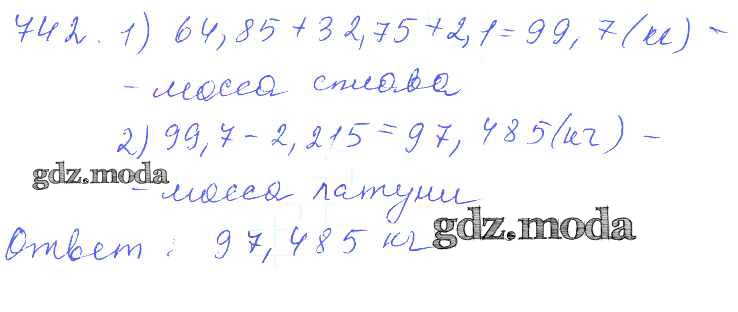 742. 1) 64,85 + 32,75 + 2,1 = 99,7 (м) -
- масса сплава
2) 99,7 - 2,215 = 97,485 (кг) -
gdz.moda
- масса латуни
gdz.moda
Ответ: 97,485 кг